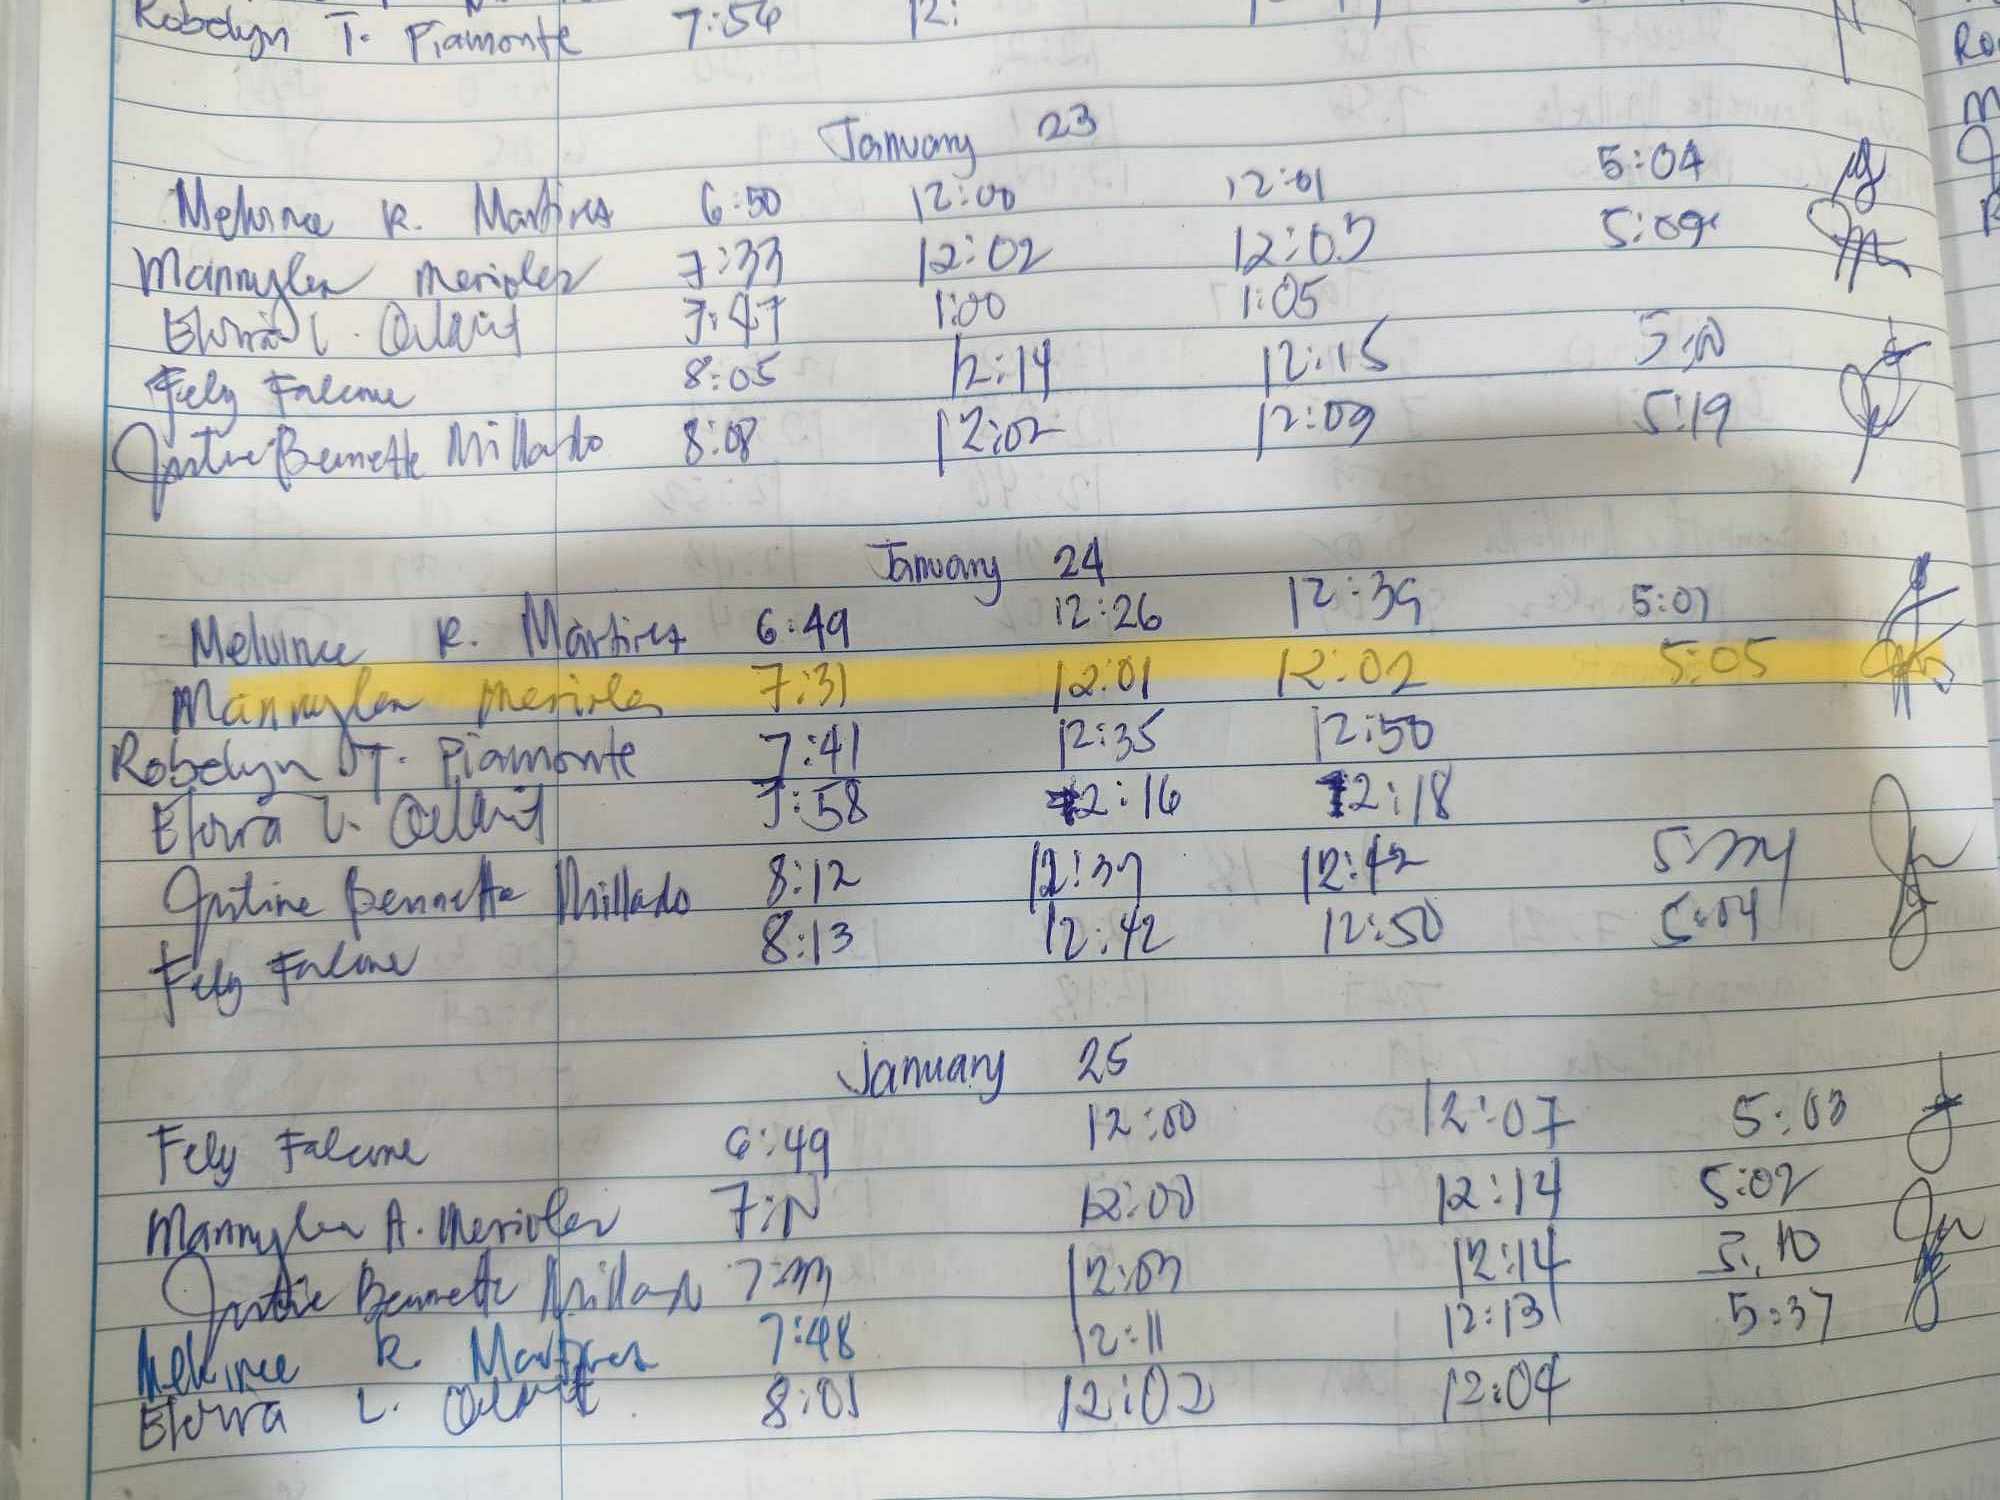 Robelyn T. Piamonte 7:54 12:
January 23
Melvince R. Martires 6:50 12:00 12:01 5:04
Mannylen Merioles 7:33 12:02 12:03 5:09
Elvira L. 7:47 1:00 1:05
Fely Falcone 8:05 12:14 12:15
Justine Bennette Millado 8:08 12:02 12:09 5:19
January 24
Melvince R. Martires 6:49 12:26 12:39 5:07
Mannylen Merioles 7:31 12:01 12:02 5:05
Robelyn T. Piamonte 7:41 12:35 12:50
Elvira L. 7:58 12:16 12:18
Justine Bennette Millado 8:12 12:37 12:42
Fely Falcone 8:13 12:42 12:50 5:04
January 25
Fely Falcone 6:49 12:00 12:07 5:03
Mannylen A. Merioles 12:00 12:14 5:02
Justine Bennette Millado 7:33 12:03 12:14 5:10
Melvince R. Martires 7:48 12:11 12:13 5:37
Elvira L. 8:01 12:02 12:04